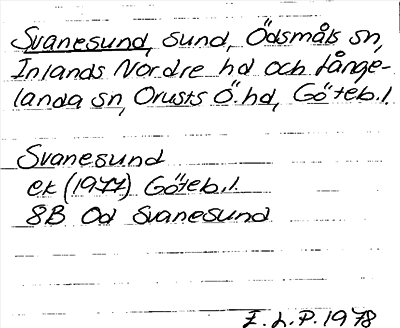 Svanesund, sund, Ödsmåls sn,
Inlands Nordre hd och Långe-
landa sn, Orusts Ö. hd, Göteb.l.
Svanesund
ek (1977) Göteb.l.
8B Od Svanesund
E.L.P. 1978